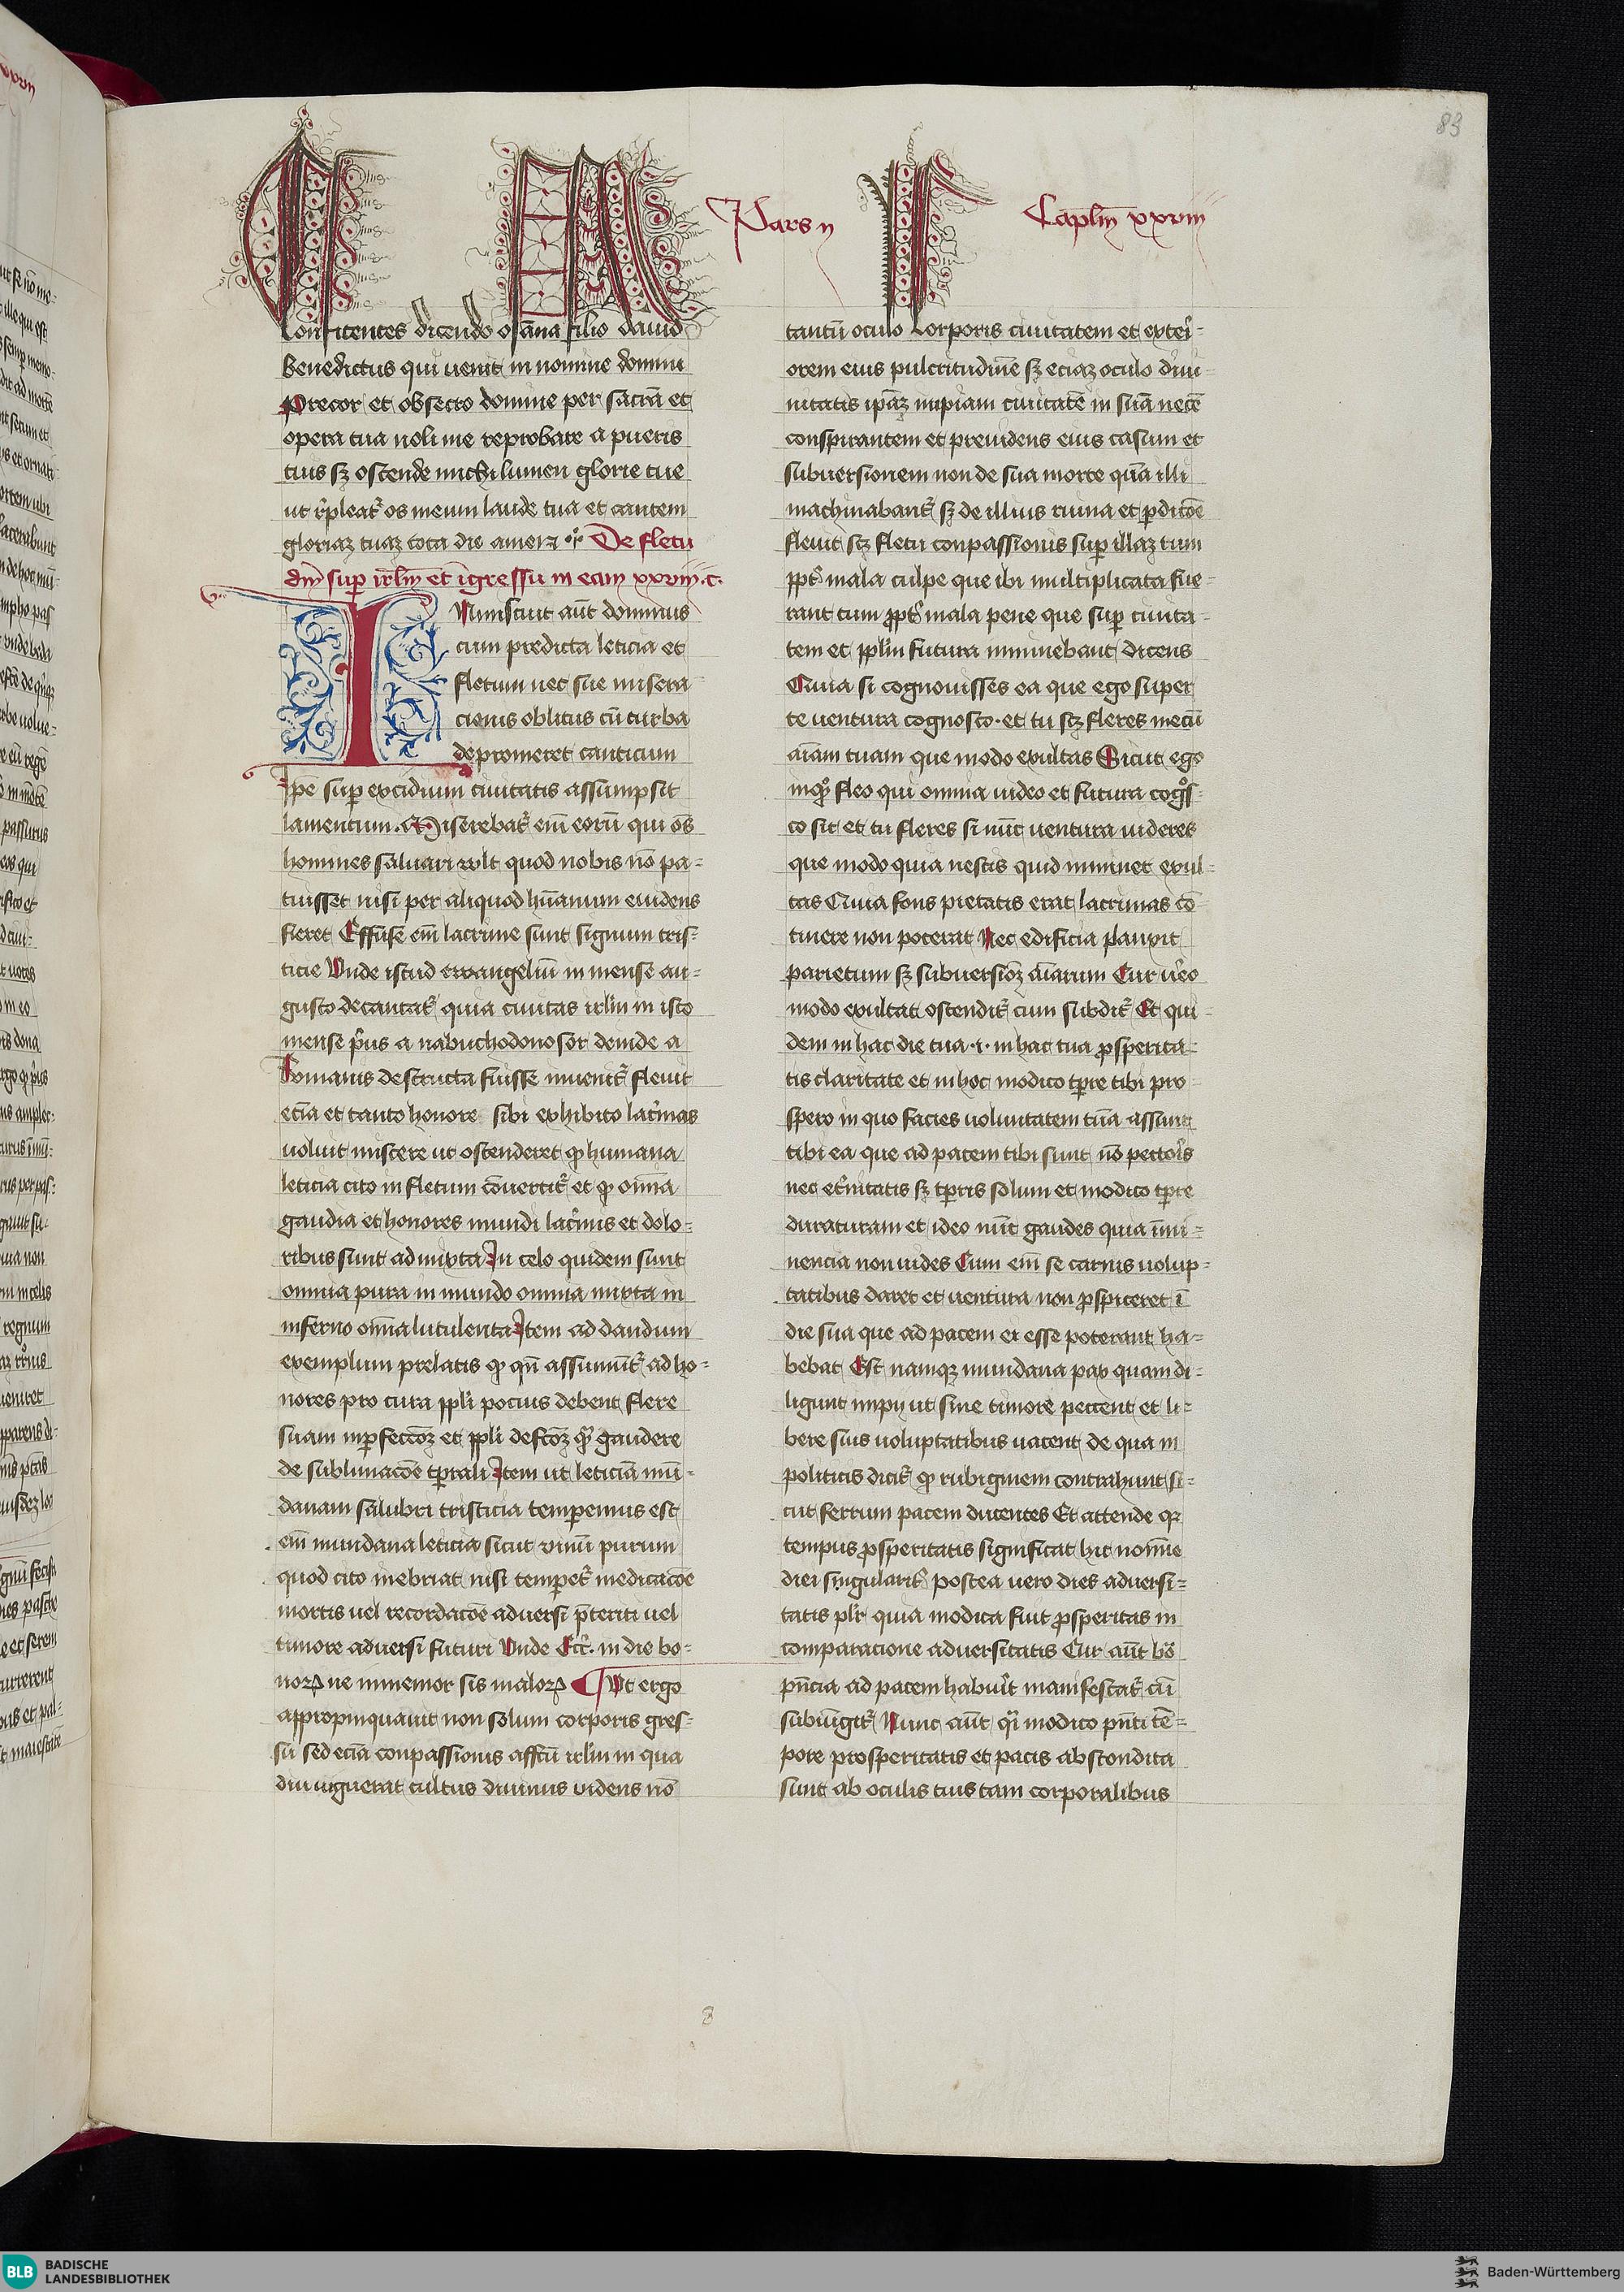 83
Pars ij
Caplm̄ xxviij
Confitentes dicendo osāna filio dauid
Benedictus qui uenit in nomine domini
Precor et obsecro domine per sacrā et
opera tua noli me reprobare a pueris
tuis sꝫ ostende michi lumen glorie tue
ut rͥpleatᷣ os meum laude tua et cantem
gloriaꝫ tuaꝫ tota die amen
De fletu
dnī suꝑ irlm̄ et īgressu in eam xxviij. c.
INmiscuit aūt dominus
cum predicta leticia et
fletum nec sue misera
cionis oblitus cū turba
depromeret canticum
Ipē suꝑ excidium ciuitatis assumpsit
lamentum. Miserebatᷣ em̄ eorū qui oēs
homines saluari volt quod nobis nō pa=
tuisset nisi per aliquod hūanum euidens
fieret Effuse em̄ lacrime sunt signum tris=
ticie Vnde istud ewangeliū in mense au=
gusto decantatᷣ quia ciuitas irlm̄ in isto
mense pͥus a nabuchodonosor deinde a
Romanis destructa fuisse inuenitᷣ fleuit
eciā et tanto honore sibi exhibito lacͥmas
uoluit miscere ut ostenderet ꝙ humana
leticia cito in fletum cōuertitᷣ et ꝙ omīa
gaudia et honores mundi lacͥmis et dolo=
ribus sunt admixta In celo quidem sunt
omnia pura in mundo omnia mixta in
inferno omīa lutulenta Item ad dandum
exemplum prelatis ꝙ qn̄ assumūtᷣ ad ho=
nores pro cura ppli pocius debent flere
suam inꝑfeccōꝫ et ppli defcōꝫ ꝙͣ gaudere
de sublimacōe tꝑrali Item ut leticiā mū=
danam salubri tristicia temperemus est
em̄ mundana leticia sicut vinū purum
quod cito inebriat nisi temperetᷣ meditacōe
mortis uel recordacōe aduersi p̄teriti uel
timore aduersi futuri Vnde Ecc̄. in die bo=
noꝝ ne inmemor sis maloꝝ ¶ Vt ergo
appropinquauit non solum corporis gres=
su sed eciā conpassionis affcū irlm̄ in qua
diu uiguerat cultus diuinus videns nō
tantū oculo Corporis ciuitatem et exteri=
orem eius pulcritudinē sꝫ eciaꝫ oculo diui=
nitatis ipāꝫ impiam ciuitatē in suā necē
conspirantem et preuidens eius casum et
subuersionem non de sua morte quā illi
machinabantᷣ sꝫ de illius ruina et ꝑdicōe
fleuit scꝫ fletu conpassionis suꝑ illaꝫ tum
ꝓpt̄ mala culpe que ibi multiplicata fue=
rant tum ꝓpt̄ mala pene que suꝑ ciuita=
tem et pplm̄ futura imminebant dicens
Quia si cognouisses ea que ego super
te uentura cognosco. et tu scꝫ fleres mecū
aīam tuam que modo exultas Sicut ego
inqͣ fleo qui omnia uideo et futura cogͦs=
co sic et tu fleres si nūc uentura uideres
que modo quia nescis quid imminet exul=
tas Quia fons pietatis erat lacrimas cō=
tinere non poterat Nec edificia planxit
parietum sꝫ subuersiōꝫ aīarum Cur uͤo
modo exultat ostenditᷣ cum subditᷣ Et qui=
dem in hac die tua .i. in hac tua ꝓsperita=
tis claritate et in hoc modico tꝑre tibi pro=
spero in quo facies uoluntatem tuā assunt
tibi ea que ad pacem tibi sunt nō pectoris
nec etͤnitatis sꝫ tꝑris solum et modico tꝑre
duraturam et ideo nūc gaudes quia īmi=
nencia non uides Cum em̄ se carnis uolup=
tatibus daret et uentura non ꝓspiceret ī
die sua que ad pacem ei esse poterant ha=
bebat Est namqꝫ mundana pax quam di=
ligunt impij ut sine timore peccent et li=
bere suis uoluptatibus uacent de qua in
politicis dicitᷣ ꝙ rubiginem contrahunt si=
cut ferrum pacem ducentes Et attende ꝙ
tempus ꝓsperitatis significat hic nomine
diei singularitͤ postea uero dies aduersi=
tatis plr̄ quia modica fuit ꝓsperitas in
comparacione aduersitatis Cur aūt bō
pn̄cia ad pacem habuͤit manifestatᷣ cū
subiungitᷣ Nunc aūt qͥ modico pn̄ti tē=
pore prosperitatis et pacis abscondita
sunt ab oculis tuis tam corporalibus
8
BLB
BADISCHE
LANDESBIBLIOTHEK
Baden-Württemberg